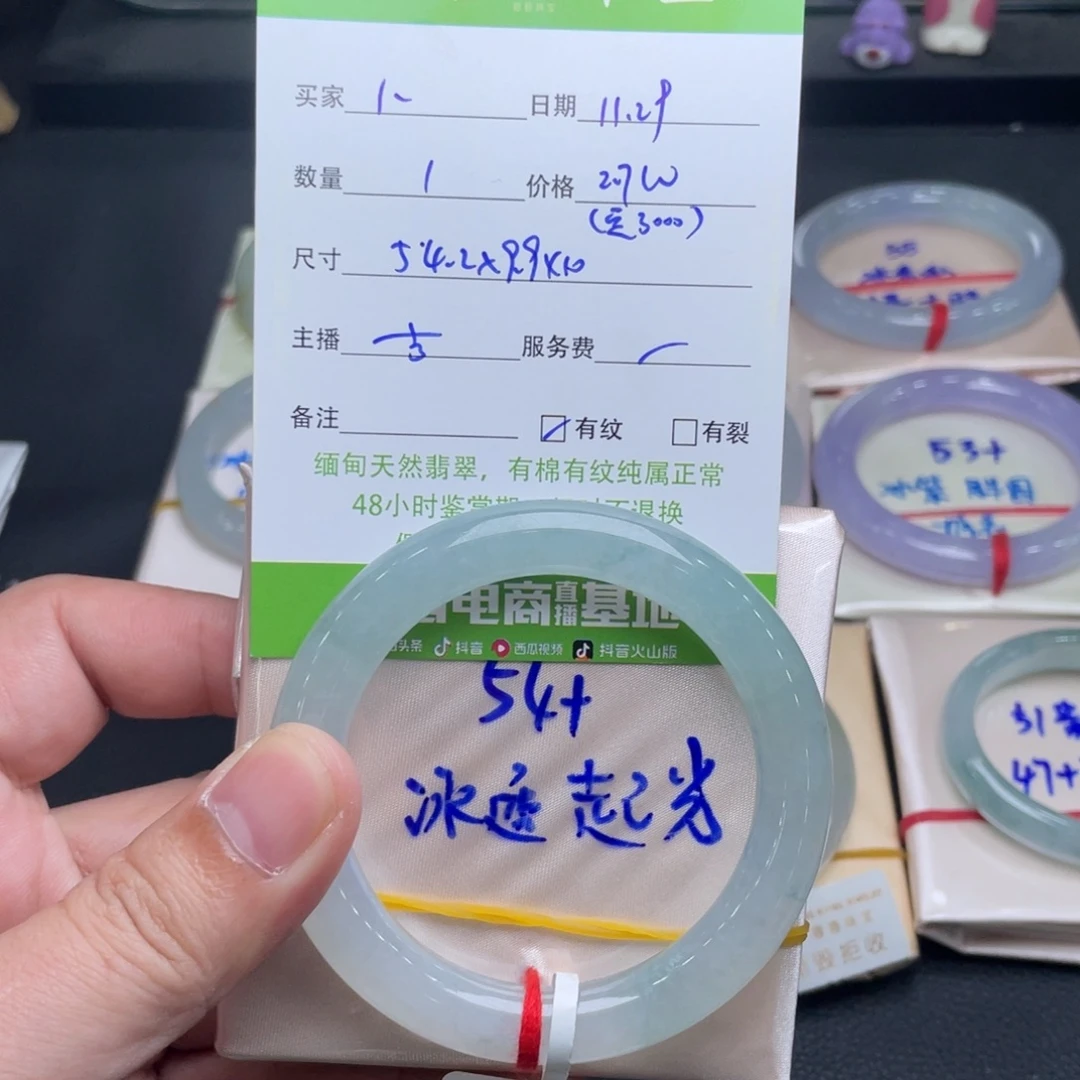 买家 日期 11.29
数量 1 价格 2.7W
(定3000)
尺寸 54.2x9.9x10
主播 服务费
备注 有纹 有裂
缅甸天然翡翠，有棉有纹纯属正常
48小时鉴赏期 不退换
电商直播基地
头条 抖音 西瓜视频 抖音火山版
54+
冰透 起光
55
53+
冰紫 胖圆
31
47+
毁拒收